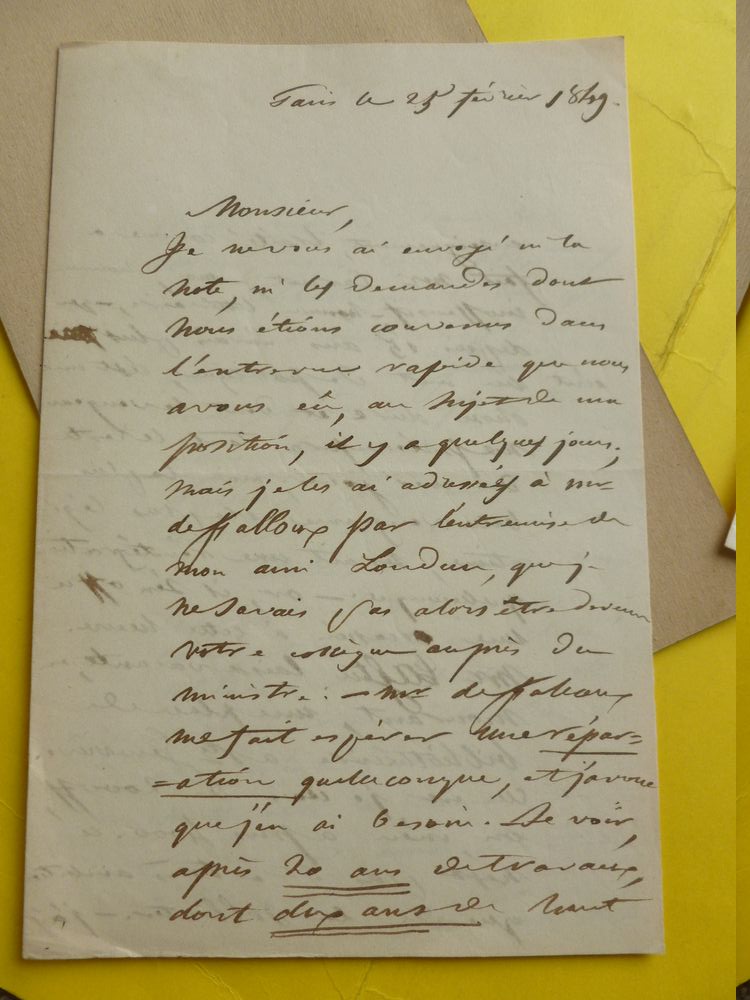 Paris le 25 février 1849.
Monsieur,
Je ne vous ai envoyé ni la
note, ni les demandes dont
nous étions convenus dans
l'entrevue rapide que nous
avons eû, au sujet de ma
position, il y a quelques jours,
mais je les ai adressées à mr
de Falloux par l'entremise de
mon ami Loudun, que je
ne savais pas alors être devenu
votre collègue auprès du
ministre. — mr de Falloux
me fait espérer une répar=
=ation quelconque, et j'avoue
que j'en ai besoin. Se voir,
après 20 ans de travaux,
dont dix ans de haut